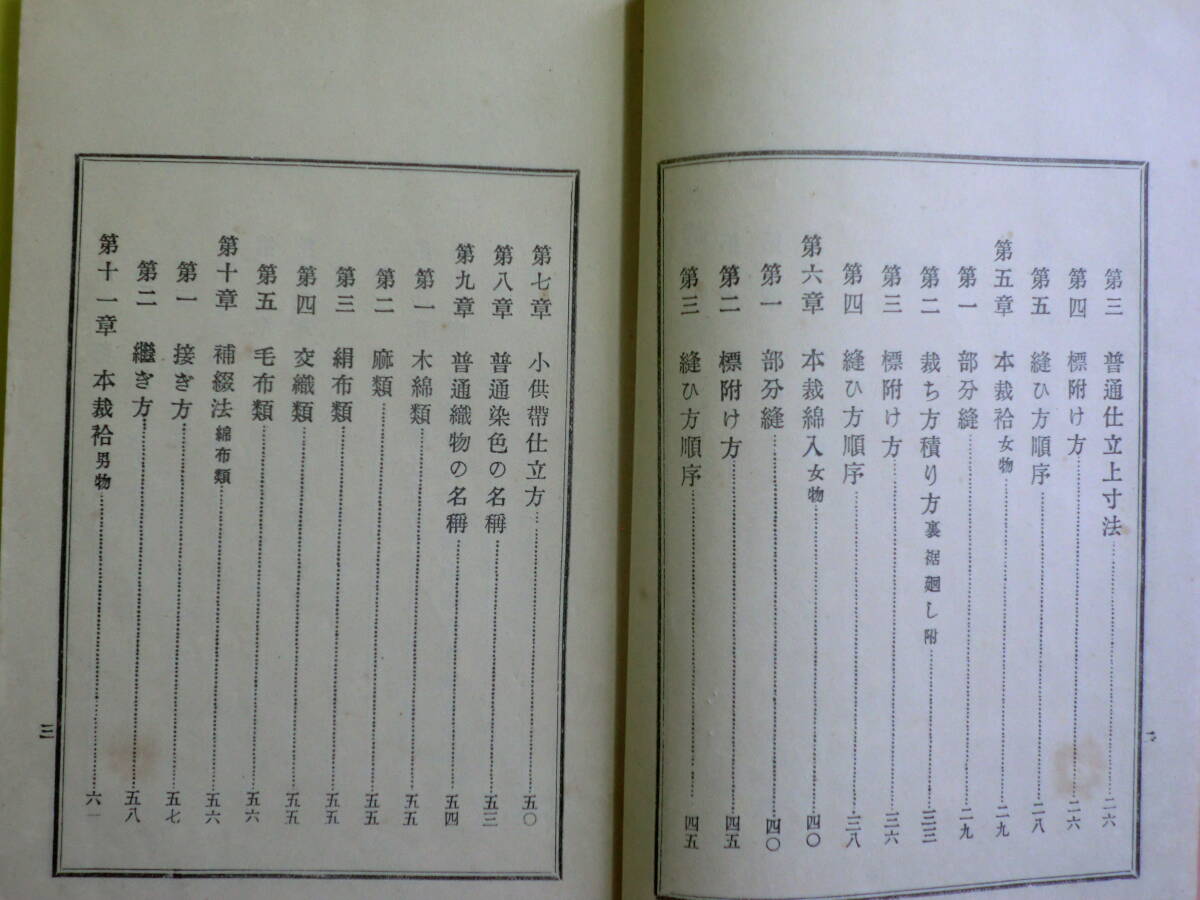 第三 普通仕立上寸法……二六
第四 標附け方……二六
第五 縫ひ方順序……二八
第五章 本裁袷女物……二九
第一 部分縫……二九
第二 裁ち方積り方裏裾廻し附……三三
第三 標附け方……三六
第四 縫ひ方順序……三八
第六章 本裁綿入女物……四〇
第一 部分縫……四〇
第二 標附け方……四五
第三 縫ひ方順序……四五
第七章 小供帶仕立方……五〇
第八章 普通染色の名稱……五三
第九章 普通織物の名稱……五四
第一 木綿類……五五
第二 麻類……五五
第三 絹布類……五五
第四 交織類……五五
第五 毛布類……五六
第十章 補綴法綿布類……五六
第一 接ぎ方……五七
第二 繼ぎ方……五八
第十一章 本裁袷男物……六一
三